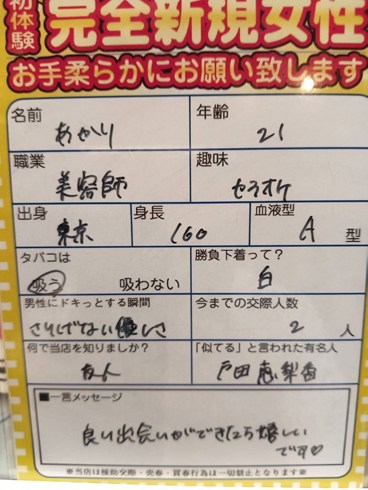 初体験
完全新規女性
お手柔らかにお願い致します
名前 あかり 年齢 21
職業 美容師 趣味 カラオケ
出身 東京 身長 160 血液型 A 型
タバコは 吸う 吸わない 勝負下着って? 白
男性にドキっとする瞬間 さりげない優しさ 今までの交際人数 2 人
何で当店を知りましたか? 友人 「似てる」と言われた有名人 戸田恵梨香
■一言メッセージ
良い出会いができたら嬉しい
です♡
※当店は援助交際・売春・買春行為は一切禁止となります※